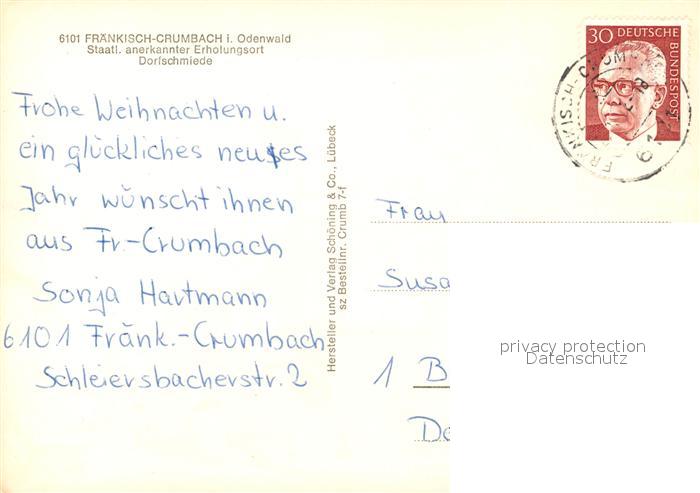 6101 FRÄNKISCH-CRUMBACH i. Odenwald
Staatl. anerkannter Erholungsort
Dorfschmiede
Frohe Weihnachten u.
ein glückliches neues
Jahr wünscht ihnen
aus Fr.-Crumbach
Sonja Hartmann
6101 Fränk.-Crumbach
Schleiersbacherstr. 2
Hersteller und Verlag Schöning & Co., Lübeck
sz Bestellnr. Crumb 7-f
30 DEUTSCHE
BUNDESPOST
Frau
Susa
1 B
De
privacy protection
Datenschutz